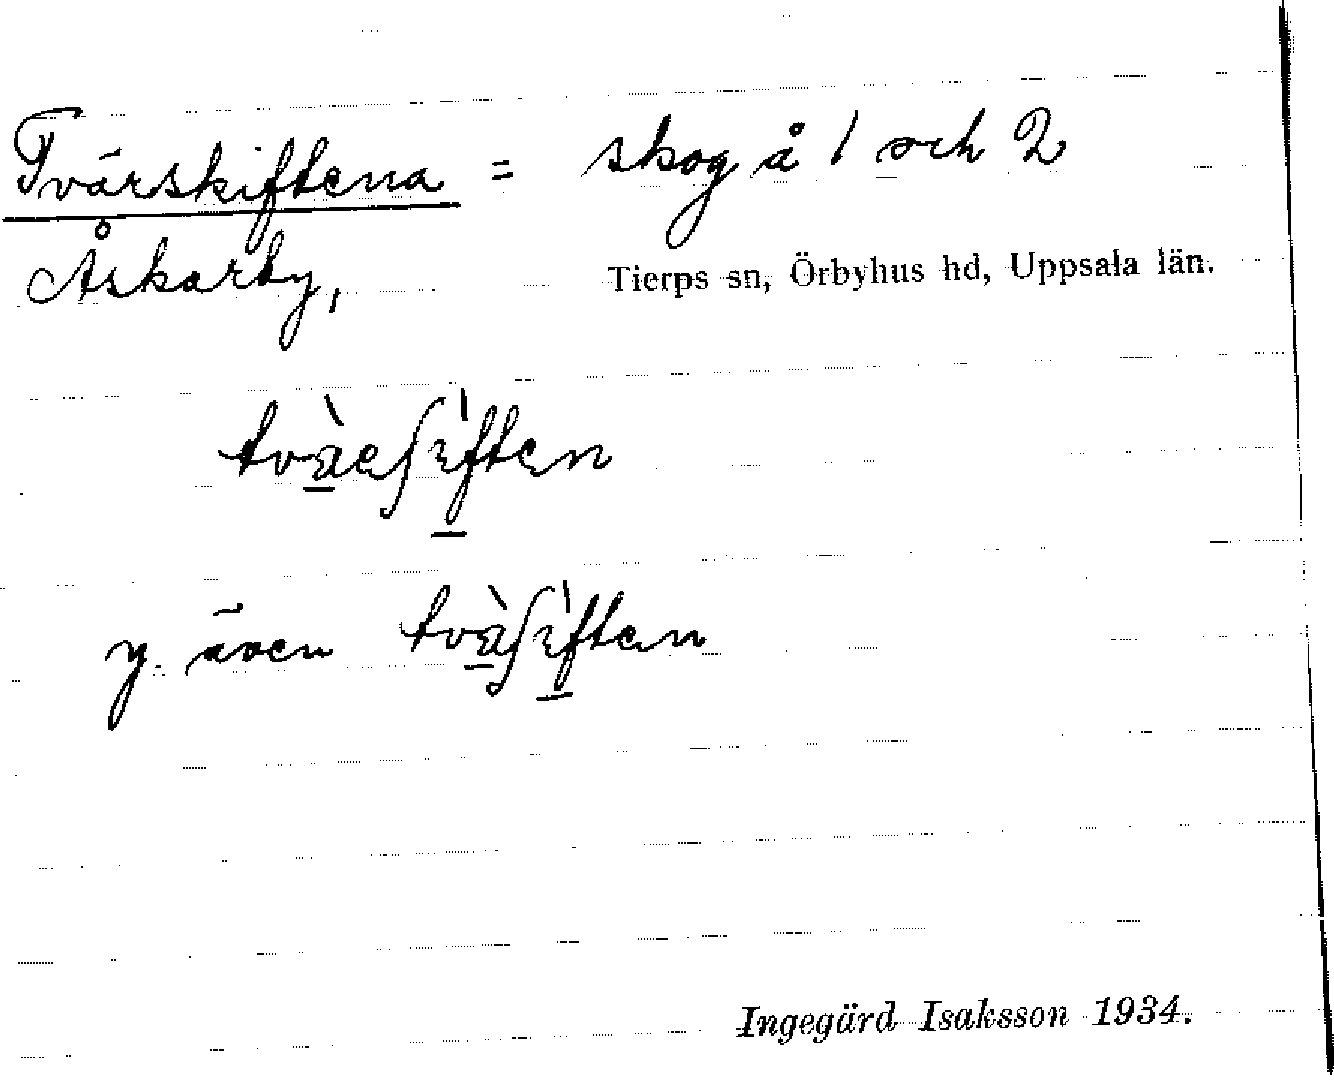 Tvärskiftena = skog å 1 och 2
Åskarby, Tierps sn, Örbyhus hd, Uppsala län.
y. även
Ingegärd Isaksson 1934.